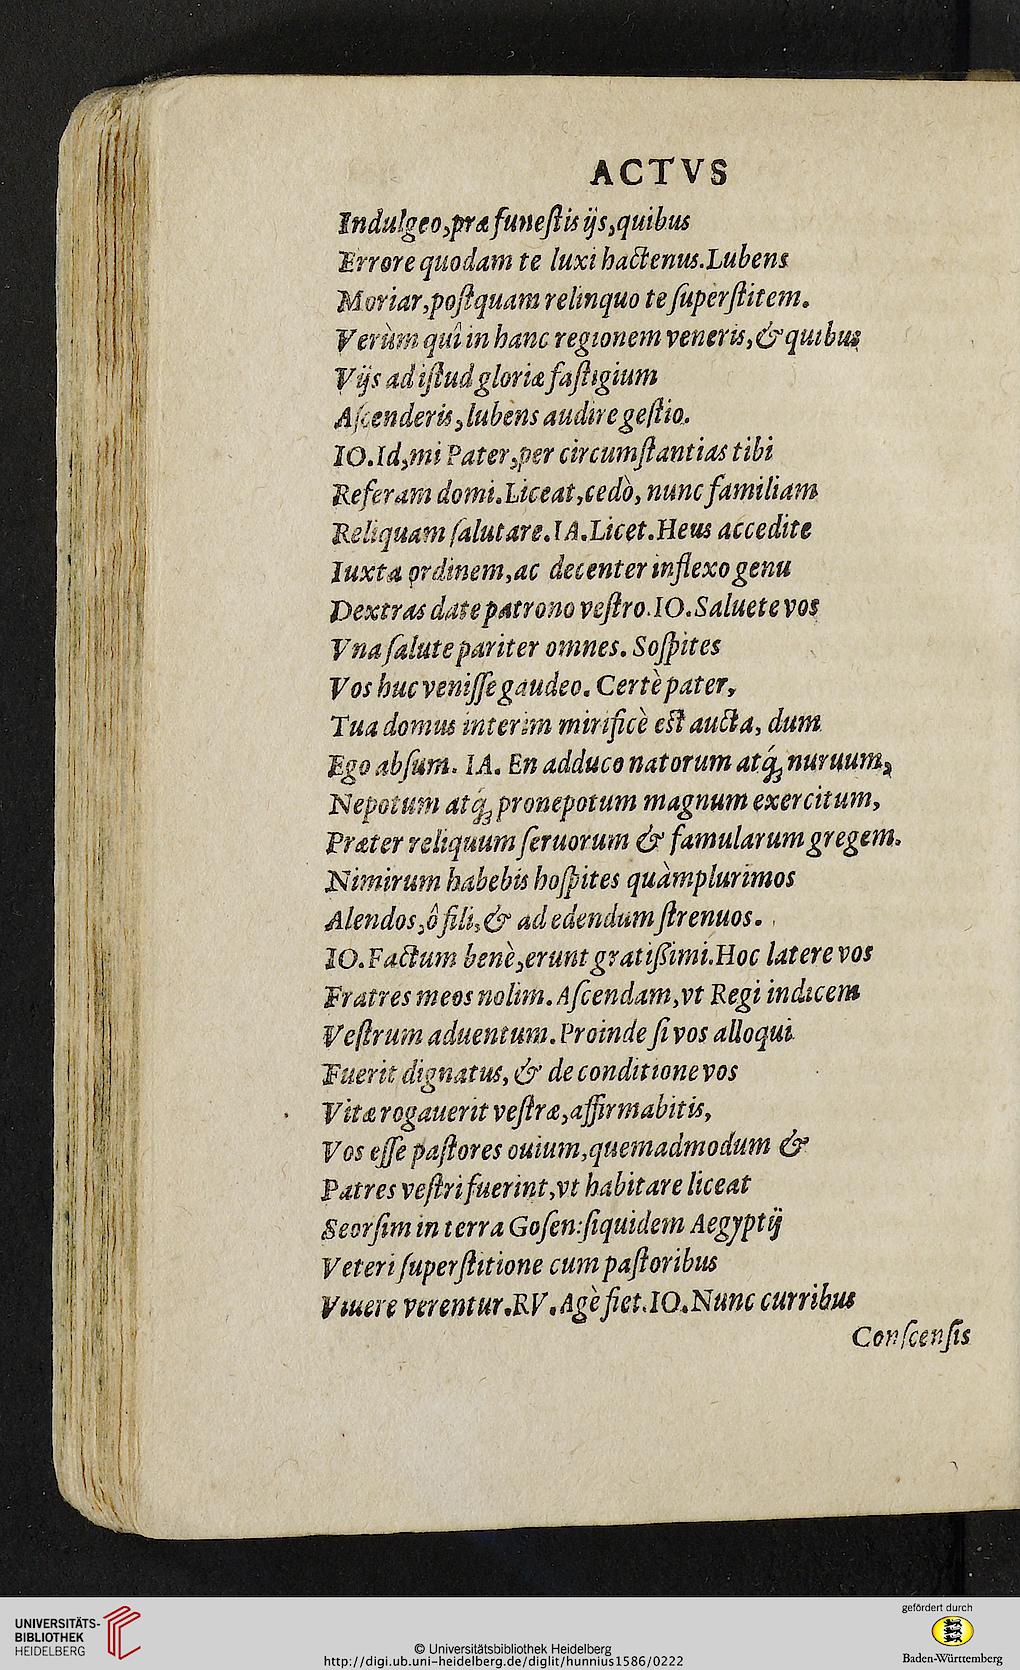 ACTVS
Indulgeo, præ funeſtis ijs, quibus
Errore quodam te luxi hactenus. Lubens
Moriar, poſtquam relinquo te ſuperſtitem.
Verùm quî in hanc regionem veneris, & quibus
Vijs ad iſtud gloriæ faſtigium
Aſcenderis, lubens audire geſtio.
IO. Id, mi Pater, per circumſtantias tibi
Referam domi. Liceat, cedò, nunc familiam
Reliquam ſalutare. IA. Licet. Heus accedite
Iuxta ordinem, ac decenter inflexo genu
Dextras date patrono veſtro. IO. Saluete vos
Vna ſalute pariter omnes. Soſpites
Vos huc veniſſe gaudeo. Certè pater,
Tua domus interim mirificè eſt aucta, dum
Ego abſum. IA. En adduco natorum atq́; nuruum,
Nepotum atq́; pronepotum magnum exercitum,
Præter reliquum ſeruorum & famularum gregem.
Nimirum habebis hoſpites quàmplurimos
Alendos, ô fili, & ad edendum ſtrenuos.
IO. Factum benè, erunt gratißimi. Hoc latere vos
Fratres meos nolim. Aſcendam, vt Regi indicem
Veſtrum aduentum. Proinde ſi vos alloqui
Fuerit dignatus, & de conditione vos
Vitæ rogauerit veſtræ, affirmabitis,
Vos eſſe paſtores ouium, quemadmodum &
Patres veſtri fuerint, vt habitare liceat
Seorſim in terra Goſen: ſiquidem Aegyptij
Veteri ſuperſtitione cum paſtoribus
Viuere verentur. RV. Agè fiet. IO. Nunc curribus
Conſcenſis
UNIVERSITÄTS-
BIBLIOTHEK
HEIDELBERG
© Universitätsbibliothek Heidelberg
http://digi.ub.uni-heidelberg.de/diglit/hunnius1586/0222
gefördert durch
Baden-Württemberg